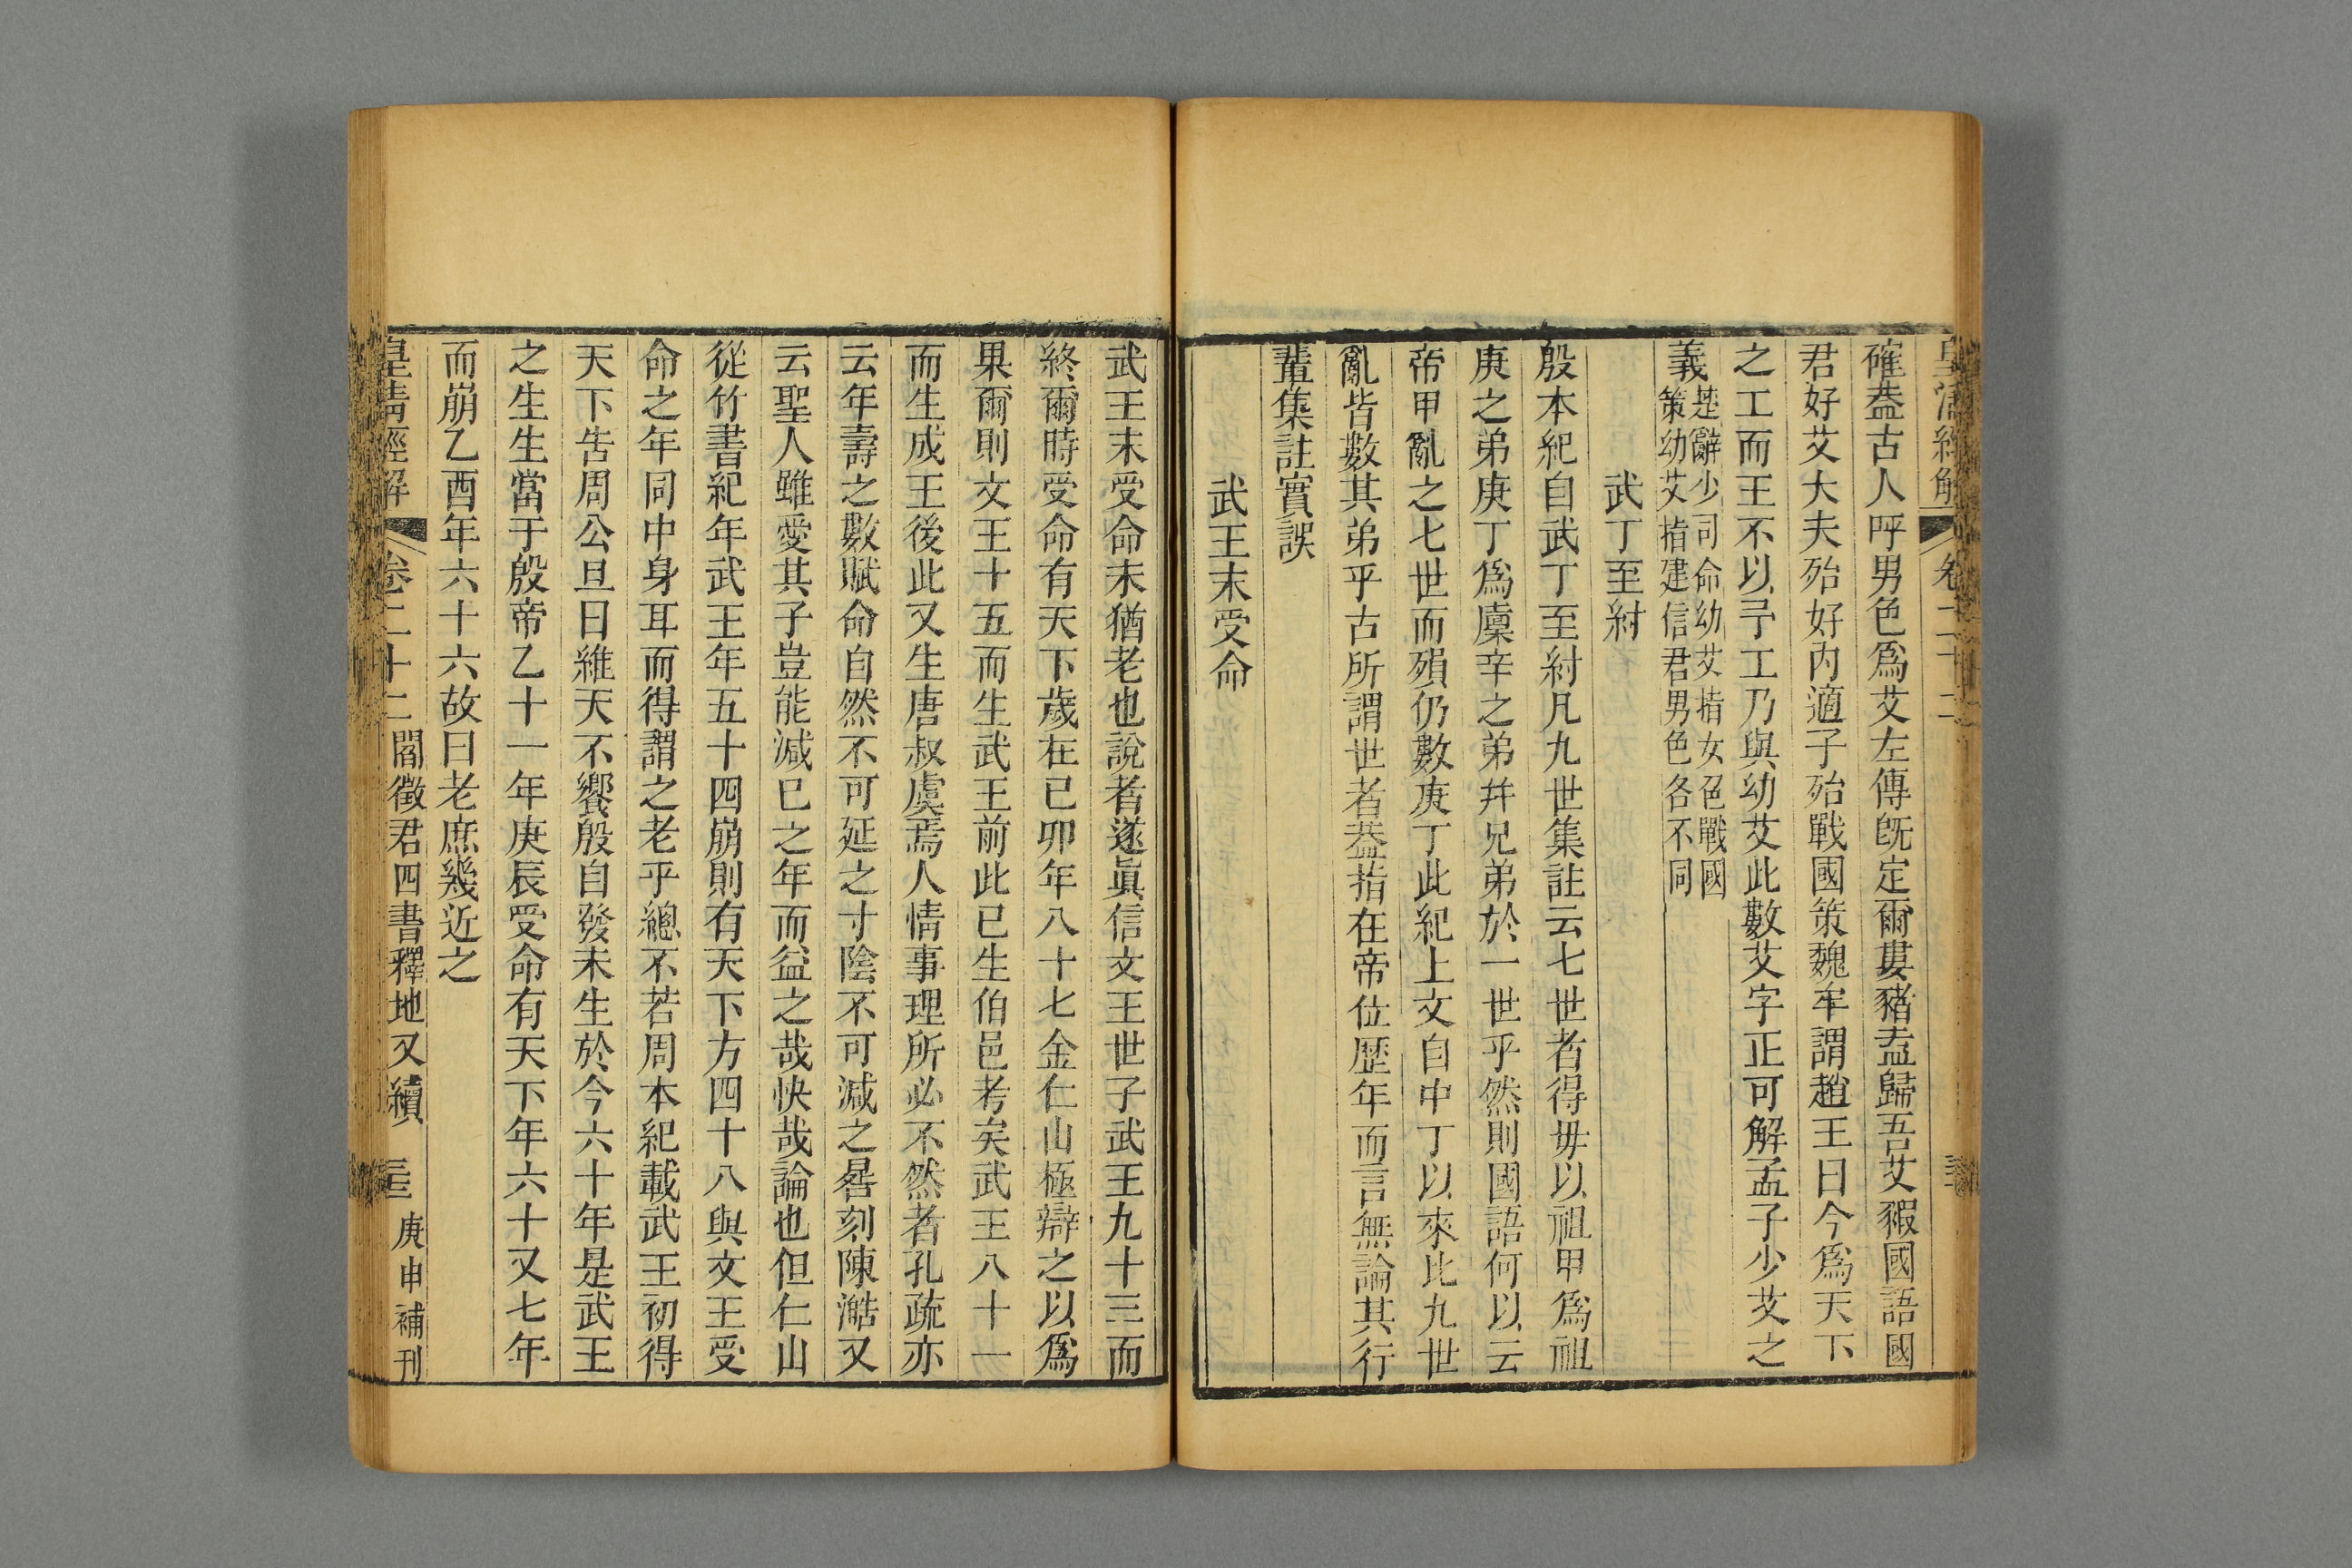 皇清經解 卷二十二
確葢古人呼男色爲艾左傳旣定爾婁豬盍歸吾艾豭國語國
君好艾大夫殆好內適子殆戰國策魏牟謂趙王曰今爲天下
之工而王不以予工乃與幼艾此數艾字正可解孟子少艾之
義楚辭少司命幼艾指女色戰國策幼艾指建信君男色各不同
武丁至紂
殷本紀自武丁至紂凡九世集註云七世者得毋以祖甲爲祖
庚之弟庚丁爲廩辛之弟幷兄弟於一世乎然則國語何以云
帝甲亂之七世而殞仍數庚丁此紀上文自中丁以來比九世
亂皆數其弟乎古所謂世者葢指在帝位歷年而言無論其行
輩集註實誤
武王末受命
武王末受命末猶老也說者遂眞信文王世子武王九十三而
終爾時受命有天下歲在己卯年八十七金仁山極辯之以爲
果爾則文王十五而生武王前此已生伯邑考矣武王八十一
而生成王後此又生唐叔虞焉人情事理所必不然者孔疏亦
云年壽之數賦命自然不可延之寸陰不可減之晷刻陳澔又
云聖人雖愛其子豈能減己之年而益之哉快哉論也但仁山
從竹書紀年武王年五十四崩則有天下方四十八與文王受
命之年同中身耳而得謂之老乎總不若周本紀載武王初得
天下吿周公旦曰維天不饗殷自發未生於今六十年是武王
之生生當于殷帝乙十一年庚辰受命有天下年六十又七年
而崩乙酉年六十六故曰老庶幾近之
皇清經解 卷二十二 閻徵君四書釋地又續 庚申補刊